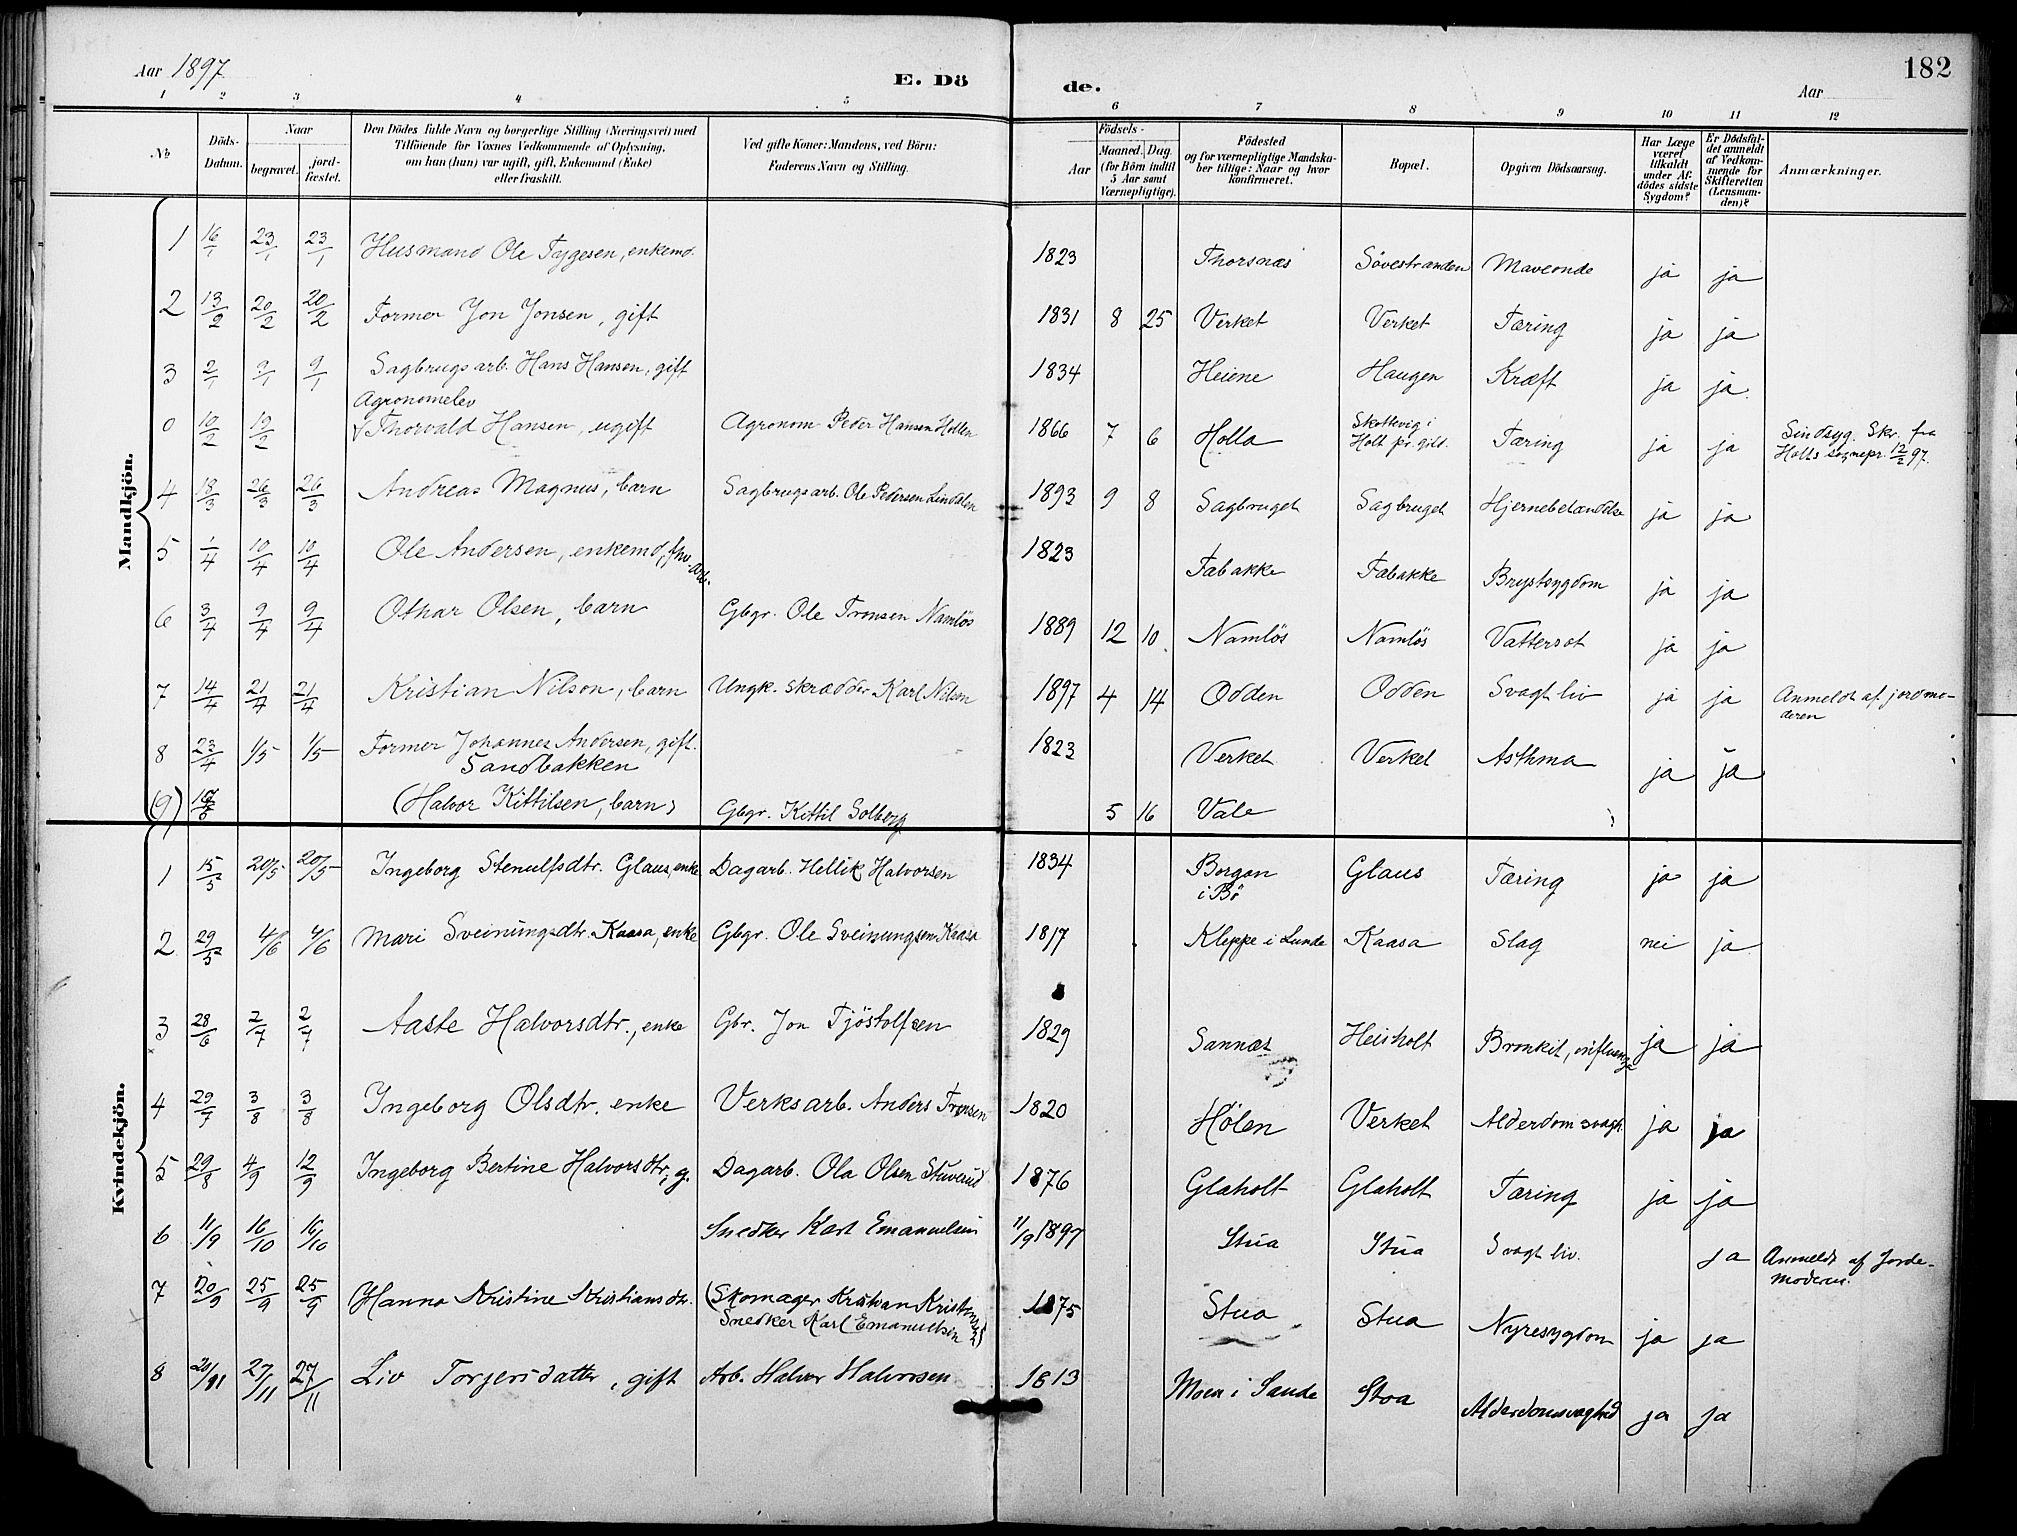 Aar 1897
E. Döde.
Aar
182
1 2 3 4 5 6 7 8 9 10 11 12
No
Döds-Datum.
Naar
begravet.
jord-fæstet.
Den Dödes fulde Navn og borgerlige Stilling (Næringsvei) med
Tilföiende for Voxnes Vedkommende af Oplysning,
om han (hun) var ugift, gift, Enkemand (Enke)
eller fraskilt.
Ved gifte Koner: Mandens, ved Börn:
Faderens Navn og Stilling.
Födsels-
Aar
Maaned. Dag.
(for Börn indtil
5 Aar samt
Værnepligtige).
Födested
og for værnepligtige Mandska-
ber tillige: Naar og hvor
konfirmeret.
Bopæl.
Opgiven Dödsaarsag.
Har Læge
været
tilkaldt
under Af-
dödes sidste
Sygdom?
Er Dödsfal-
det anmeldt
af Vedkom-
mende for
Skifteretten
(Lensman-
den)?
Anmærkninger.
Mandkjön.
1 16/1 23/1 23/1 Husmand Ole Tygesen, enkemd. 1823 Thorsnæs Søvestranden Maveonde ja ja
2 13/2 20/2 20/2 Former Jon Jonsen, gift 1831 8 25 Verket Verket Tæring ja ja
3 2/1 9/1 9/1 Sagbrugsarb. Hans Hansen, gift 1834 Heiene Haugen Kræft ja ja.
Agronomelev
0 10/2 19/2 Thorvald Hansen, ugift Agronom Peder Hansen Hollen 1866 7 6 Holla Skottevig i Holt pr.gild. Tæring ja ja Sindsyg. Skr. fra
Holts sognepr. 12/2 97.
4 18/3 26/3 26/3 Andreas Magnus, barn Sagbrugsarb. Ole Pedersen Lindalen 1893 9 8 Sagbruget Sagbruget Hjernebetændelse ja ja
5 1/4 10/4 10/4 Ole Andersen, enkemd, arb. 1823 Tabakke Tabakke Brystsygdom ja ja
6 3/4 9/4 9/4 Othar Olsen, barn Gbgr. Ole Tronsen Namløs 1889 12 10 Namløs Namløs Vattersot ja ja
7 14/4 21/4 21/4 Kristian Nilson, barn Ungk. skrædder Karl Nilsen 1897 4 14 Odden Odden Svagt liv ja ja Anmeldt af jordmo-
deren
8 23/4 1/5 1/5 Former Johannes Andersen, gift. 1823 Verket Verket Asthma ja ja
Sandbakken
(9) (Halvor Kittilsen, barn) Gbgr. Kittil Solberg 5 16 Vale
Kvindekjön.
1 15/5 20/5 20/5 Ingeborg Stenulfsdtr. Glaus, enke Dagarb. Hellik Halvorsen 1834 Borgan i Bø Glaus Tæring ja ja
2 29/5 4/6 4/6 Mari Sveinungsdtr. Kaasa, enke Gbgr. Ole Sveinungsen Kaasa 1817 Kleppe i Lunde Kaasa Slag nei ja
3 28/6 2/7 2/7 Aaste Halvorsdtr., enke Gbr. Jon Tjøstolfsen 1829 Sannæs Heisholt Bronkit, influenza ja ja
4 29/7 3/8 3/8 Ingeborg Olsdtr. enke Verksarb. Anders Tronsen 1820 Hølen Verket Alderdomsvagh. ja ja
5 29/8 4/9 12/9 Ingeborg Bertine Halvorsdtr, g. Dagarb. Ola Olsen Stuverud 1876 Glaholt Glaholt Tæring ja ja
6 11/9 16/10 16/10 Snedker Karl Emanuelsen 11/9 1897 Stua Stua Svagt liv. ja Anmeldt af Jorde-
moderen.
7 20/9 25/9 25/9 Hanna Kristine Kristiansdtr. (Skomager Kristian Kristensen) 1875 Stua Stua Nyresygdom ja ja
Snedker Karl Emanuelsen
8 20/11 27/11 27/11 Liv Torgersdatter, gift Arb. Halvor Halvorsen 1813 Moen i Saude Stoa Alderdomsvaghed ja ja